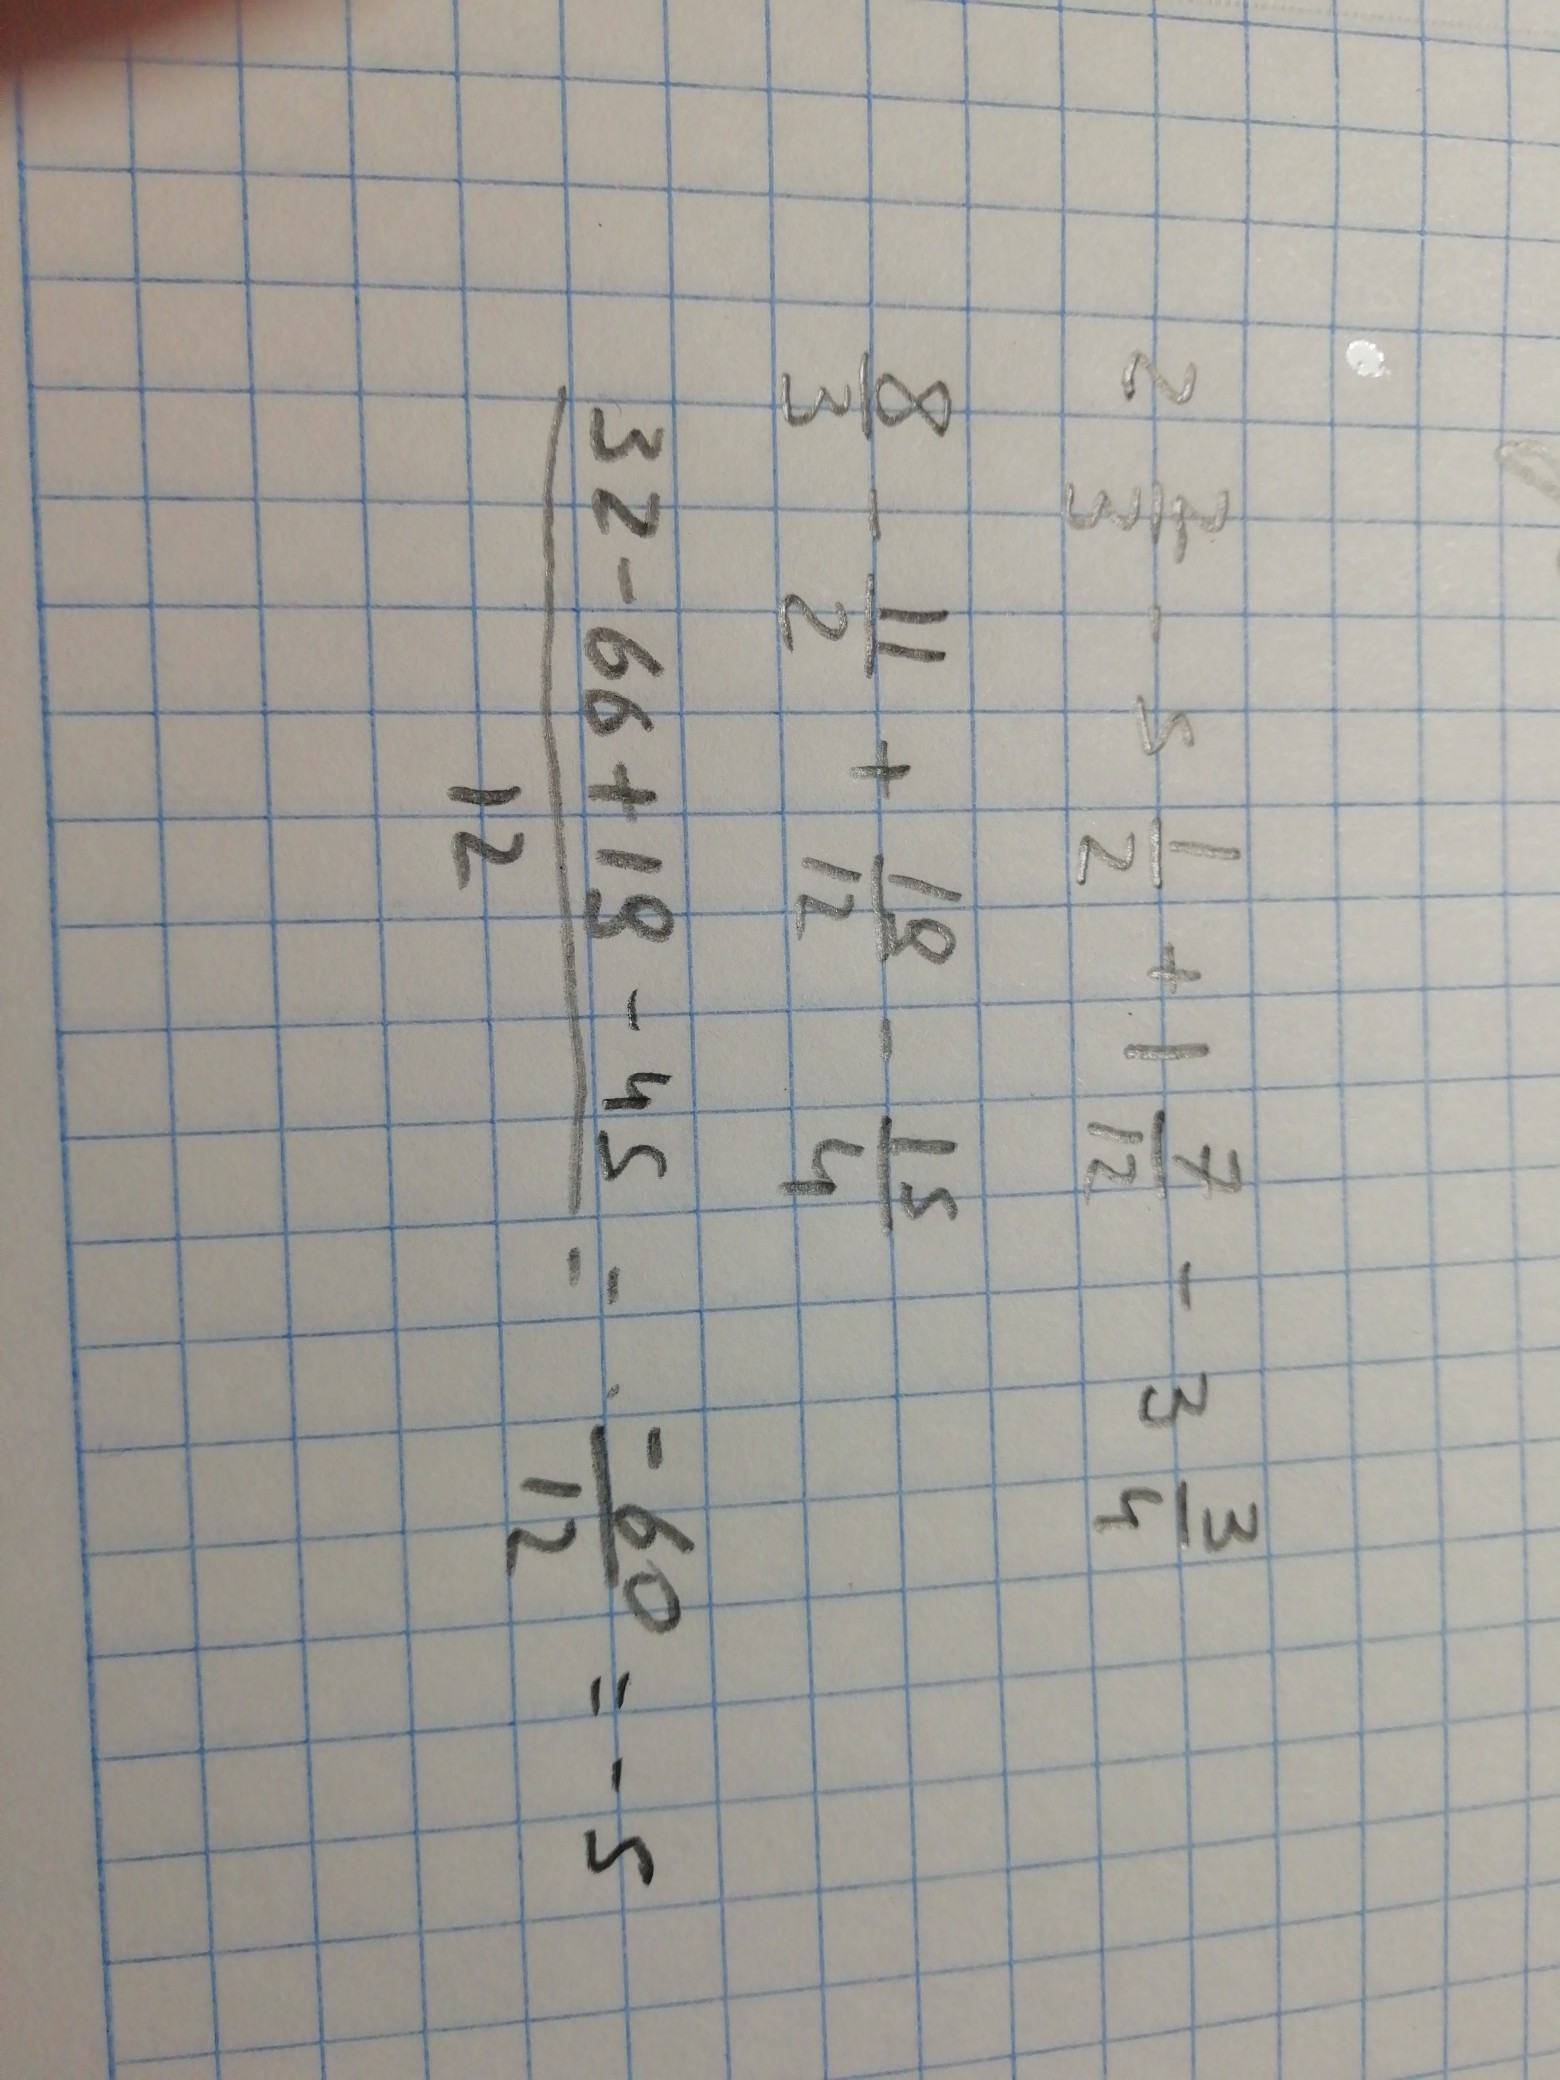 2 2/3 - 5 1/2 + 1 7/12 - 3 3/4
8/3 - 11/2 + 19/12 - 15/4
32-66+19-45/12 = -60/12 = -5